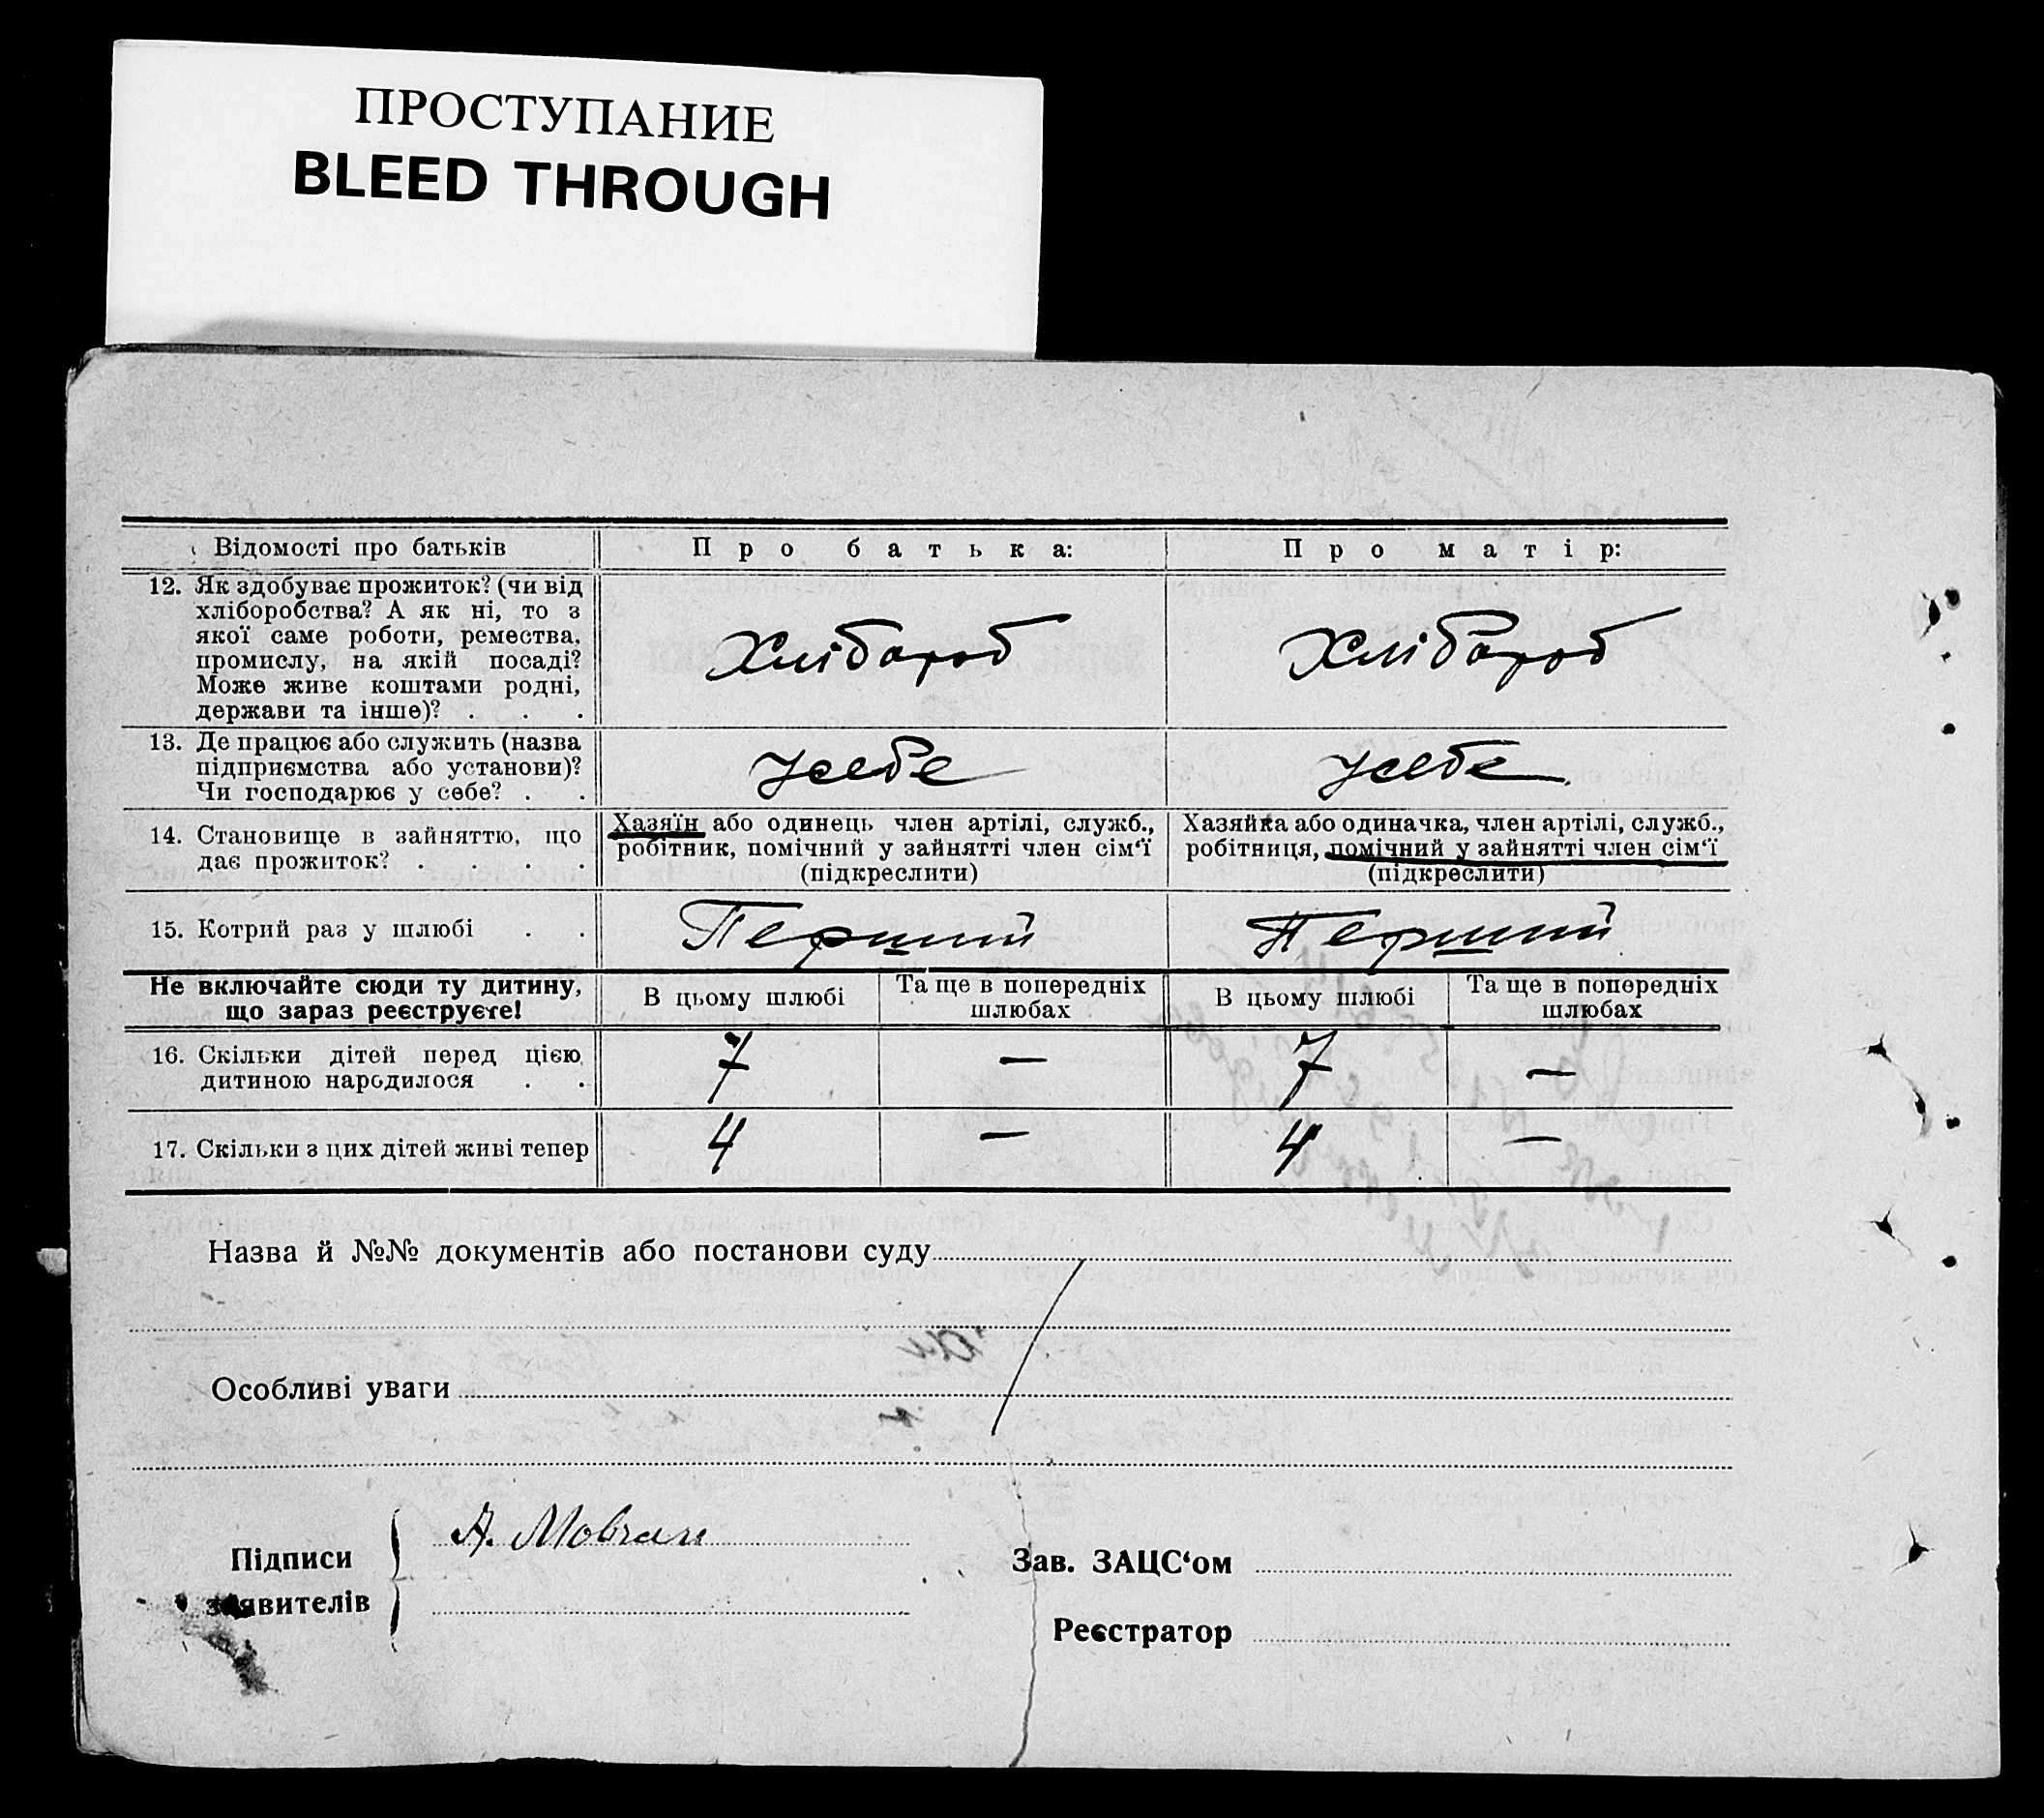 ПРОСТУПАНИЕ
BLEED THROUGH
Відомості про батьків
Про батька:
Про матір:
12. Як здобуває прожиток? (чи від
хліборобства? А як ні, то з
якої саме роботи, ремества,
промислу, на якій посаді?
Може живе коштами родні,
держави та інше)? . . .
Хлібороб
Хлібороб
13. Де працює або служить (назва
підприємства або установи)?
Чи господарює у себе? . .
У себе
У себе
14. Становище в зайняттю, що
дає прожиток? . . . .
Хазяїн або одинець член артілі, служб.,
робітник, помічний у зайнятті член сім‘ї
(підкреслити)
Хазяйка або одиначка, член артілі, служб.,
робітниця, помічний у зайнятті член сім‘ї
(підкреслити)
15. Котрий раз у шлюбі . .
Перший
Перший
Не включайте сюди ту дитину,
що зараз реєструєте!
В цьому шлюбі
Та ще в попередніх
шлюбах
В цьому шлюбі
Та ще в попередніх
шлюбах
16. Скільки дітей перед цією
дитиною народилося . .
7
—
7
—
17. Скільки з цих дітей живі тепер
4
—
4
—
Назва й №№ документів або постанови суду
Особливі уваги
Підписи
заявителів
А. Мовчан
Зав. ЗАЦС‘ом
Реєстратор